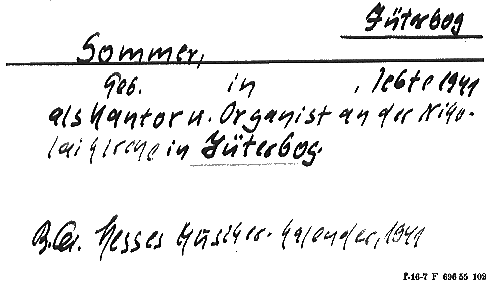 Jüterbog
Sommer,
Geb. in , lebte 1941
als Kantor u. Organist an der Niko-
laikirche in Jüterbog.
Hesses Musiker-Kalender, 1941
F-16-7 F 696 55 102